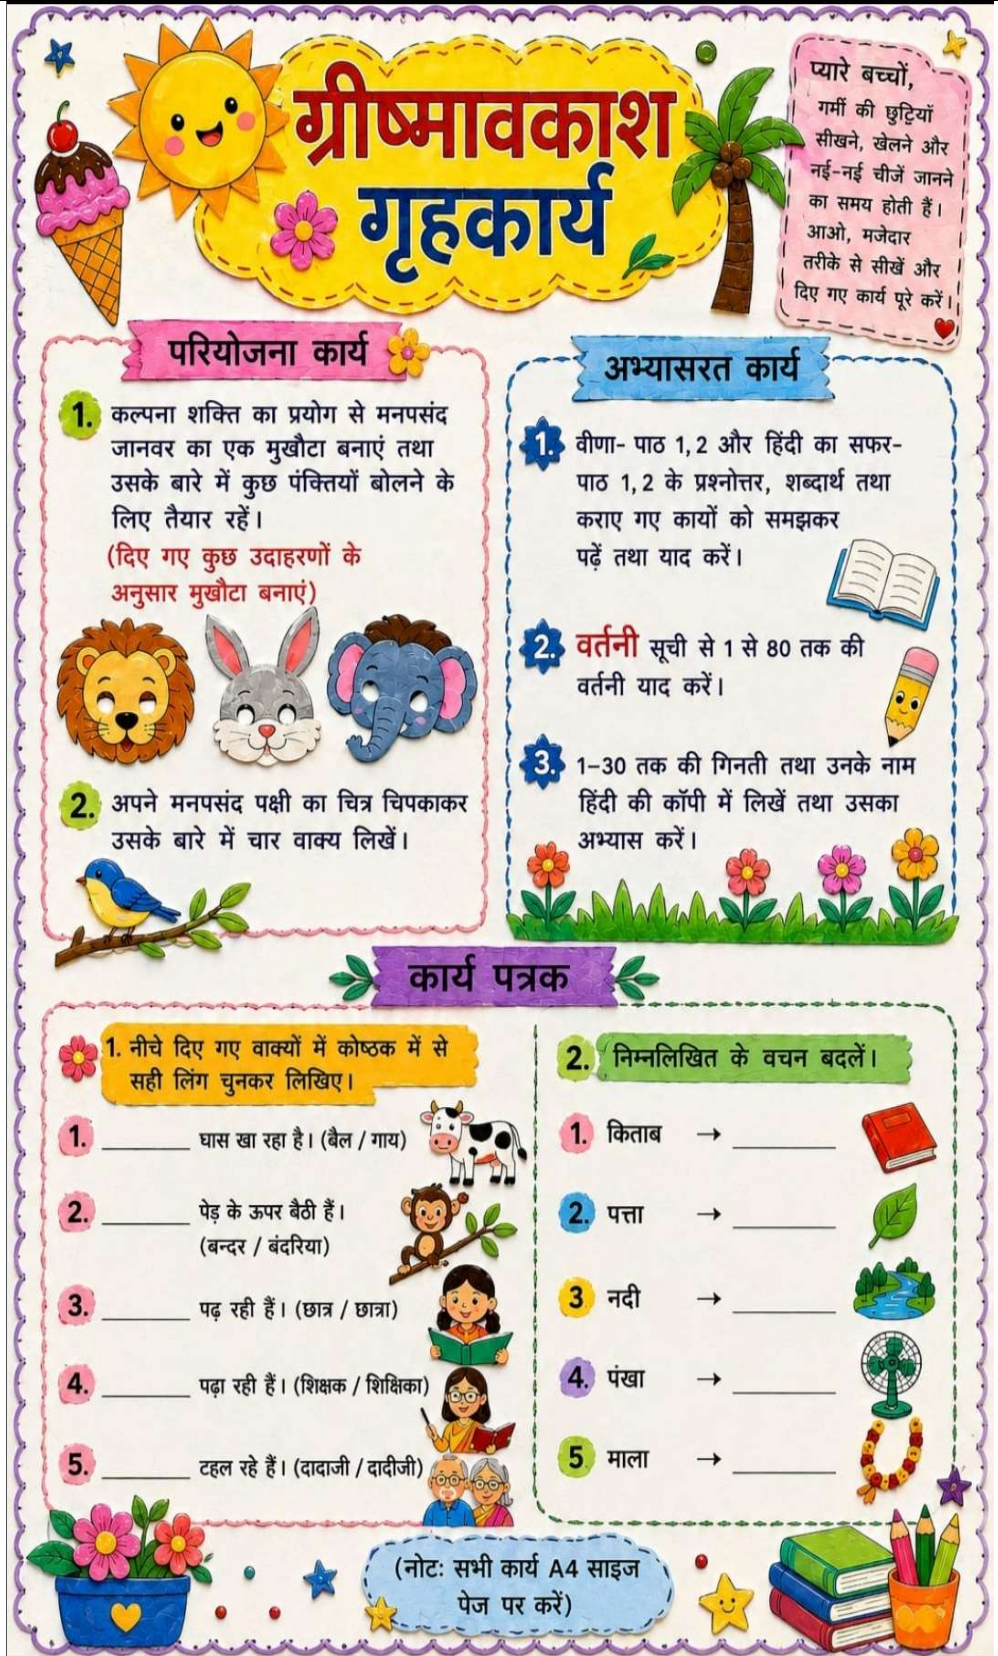 ग्रीष्मावकाश
गृहकार्य
प्यारे बच्चों,
गर्मी की छुट्टियाँ
सीखने, खेलने और
नई-नई चीजें जानने
का समय होती हैं।
आओ, मजेदार
तरीके से सीखें और
दिए गए कार्य पूरे करें।
परियोजना कार्य
1. कल्पना शक्ति का प्रयोग से मनपसंद
जानवर का एक मुखौटा बनाएं तथा
उसके बारे में कुछ पंक्तियों बोलने के
लिए तैयार रहें।
(दिए गए कुछ उदाहरणों के
अनुसार मुखौटा बनाएं)
2. अपने मनपसंद पक्षी का चित्र चिपकाकर
उसके बारे में चार वाक्य लिखें।
अभ्यासरत कार्य
1. वीणा- पाठ 1,2 और हिंदी का सफर-
पाठ 1,2 के प्रश्नोत्तर, शब्दार्थ तथा
कराए गए कायों को समझकर
पढ़ें तथा याद करें।
2. वर्तनी सूची से 1 से 80 तक की
वर्तनी याद करें।
3. 1-30 तक की गिनती तथा उनके नाम
हिंदी की कॉपी में लिखें तथा उसका
अभ्यास करें।
कार्य पत्रक
1. नीचे दिए गए वाक्यों में कोष्ठक में से
सही लिंग चुनकर लिखिए।
1. ________ घास खा रहा है। (बैल / गाय)
2. ________ पेड़ के ऊपर बैठी हैं।
(बन्दर / बंदरिया)
3. ________ पढ़ रही हैं। (छात्र / छात्रा)
4. ________ पढ़ा रही हैं। (शिक्षक / शिक्षिका)
5. ________ टहल रहे हैं। (दादाजी / दादीजी)
2. निम्नलिखित के वचन बदलें।
1. किताब → ________
2. पत्ता → ________
3 नदी → ________
4. पंखा → ________
5 माला → ________
(नोट: सभी कार्य A4 साइज
पेज पर करें)